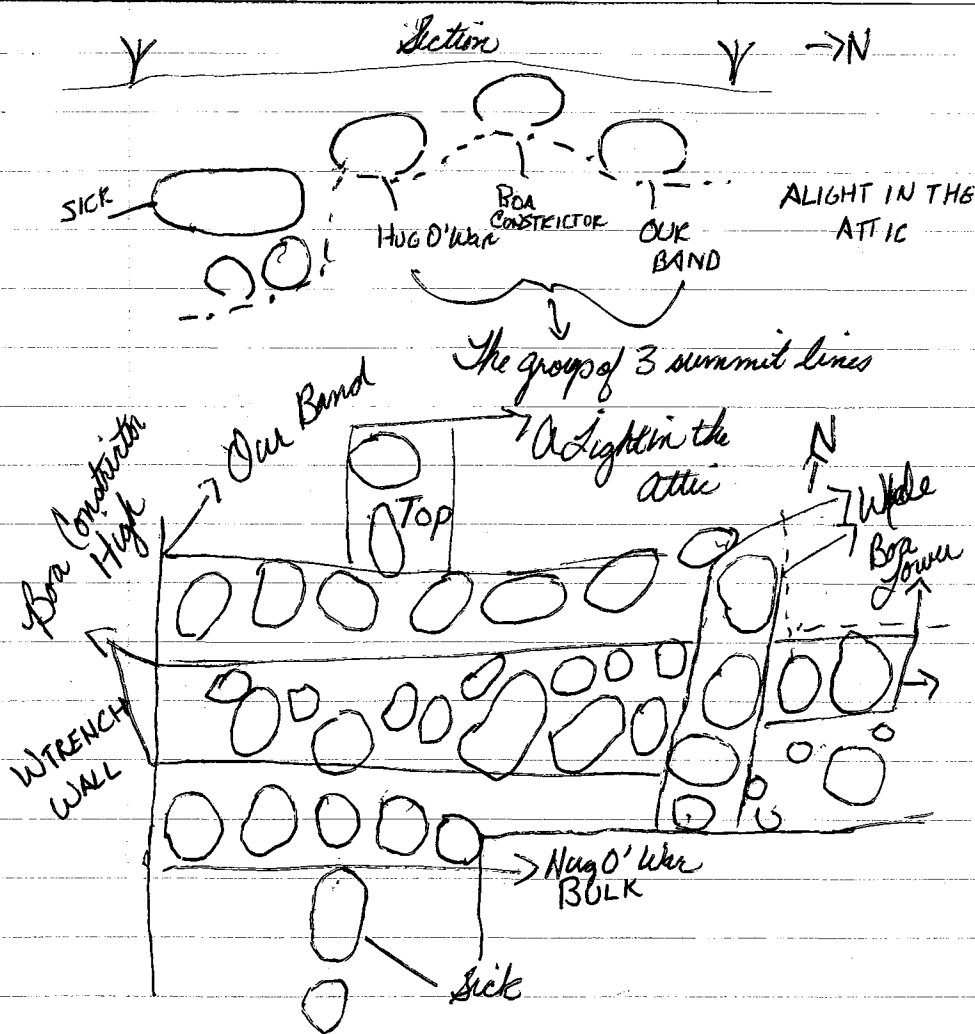 Section
→N
SICK
HUG O'War
BOA
CONSTRICTOR
OUR
BAND
ALIGHT IN THE
ATTIC
The group of 3 summit lines
Boa Constrictor
High
Our Band
A Light in the
Attic
Top
N
Boa
Lower
W TRENCH
WALL
Hug O' War
BULK
Sick